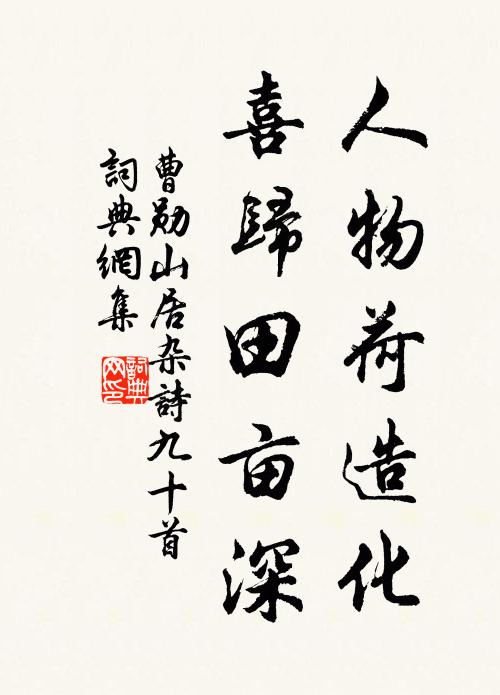 人物荷造化
喜歸田亩深
曹勋山居杂詩九十首
詞典網集
詞典
网印